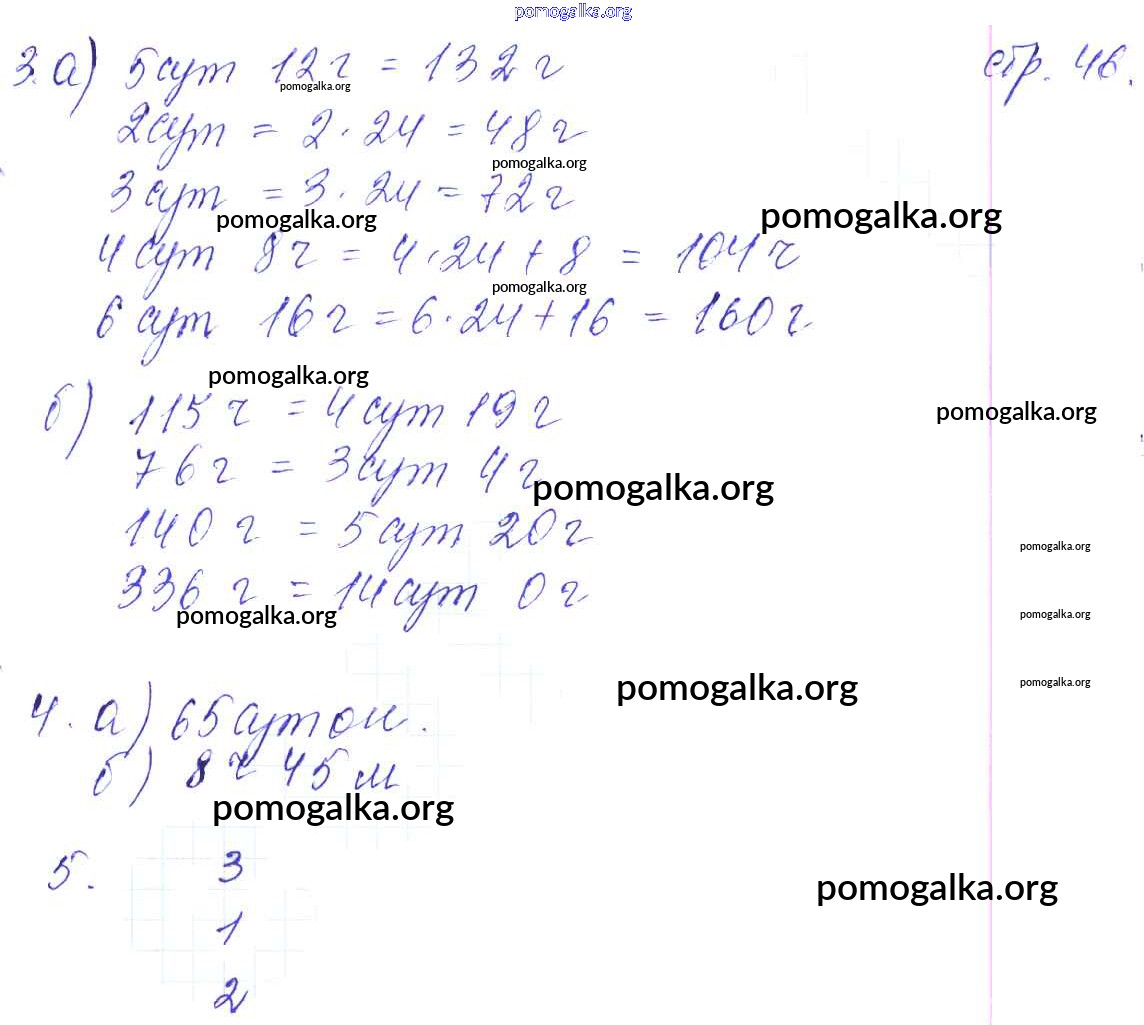 pomogalka.org
3. а) 5 сут 12 ч = 132 ч
стр. 46.
pomogalka.org
2 сут = 2 · 24 = 48 ч
pomogalka.org
3 сут = 3 · 24 = 72 ч
pomogalka.org
pomogalka.org
4 сут 8 ч = 4 · 24 + 8 = 104 ч
pomogalka.org
6 сут 16 ч = 6 · 24 + 16 = 160 ч
pomogalka.org
б) 115 ч = 4 сут 19 ч
pomogalka.org
76 ч = 3 сут 4 ч
pomogalka.org
140 ч = 5 сут 20 ч
pomogalka.org
336 ч = 14 сут 0 ч
pomogalka.org
pomogalka.org
pomogalka.org
pomogalka.org
4. а) 65 суток.
б) 8 ч 45 м
pomogalka.org
5. 3
pomogalka.org
1
2